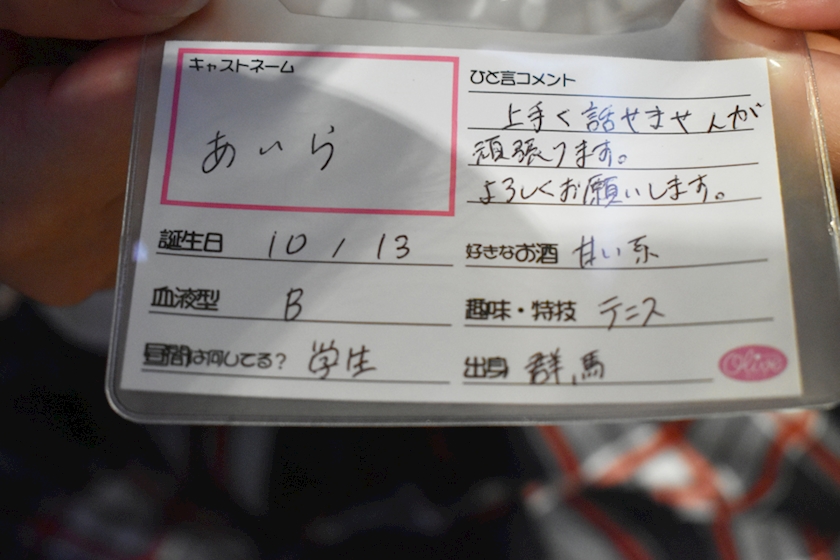 キャストネーム
あいら
ひと言コメント
上手く話せませんが
頑張ります。
よろしくお願いします。
誕生日 10 / 13
好きなお酒 甘い系
血液型 B
趣味・特技 テニス
昼間は何してる? 学生
出身 群馬
Olive